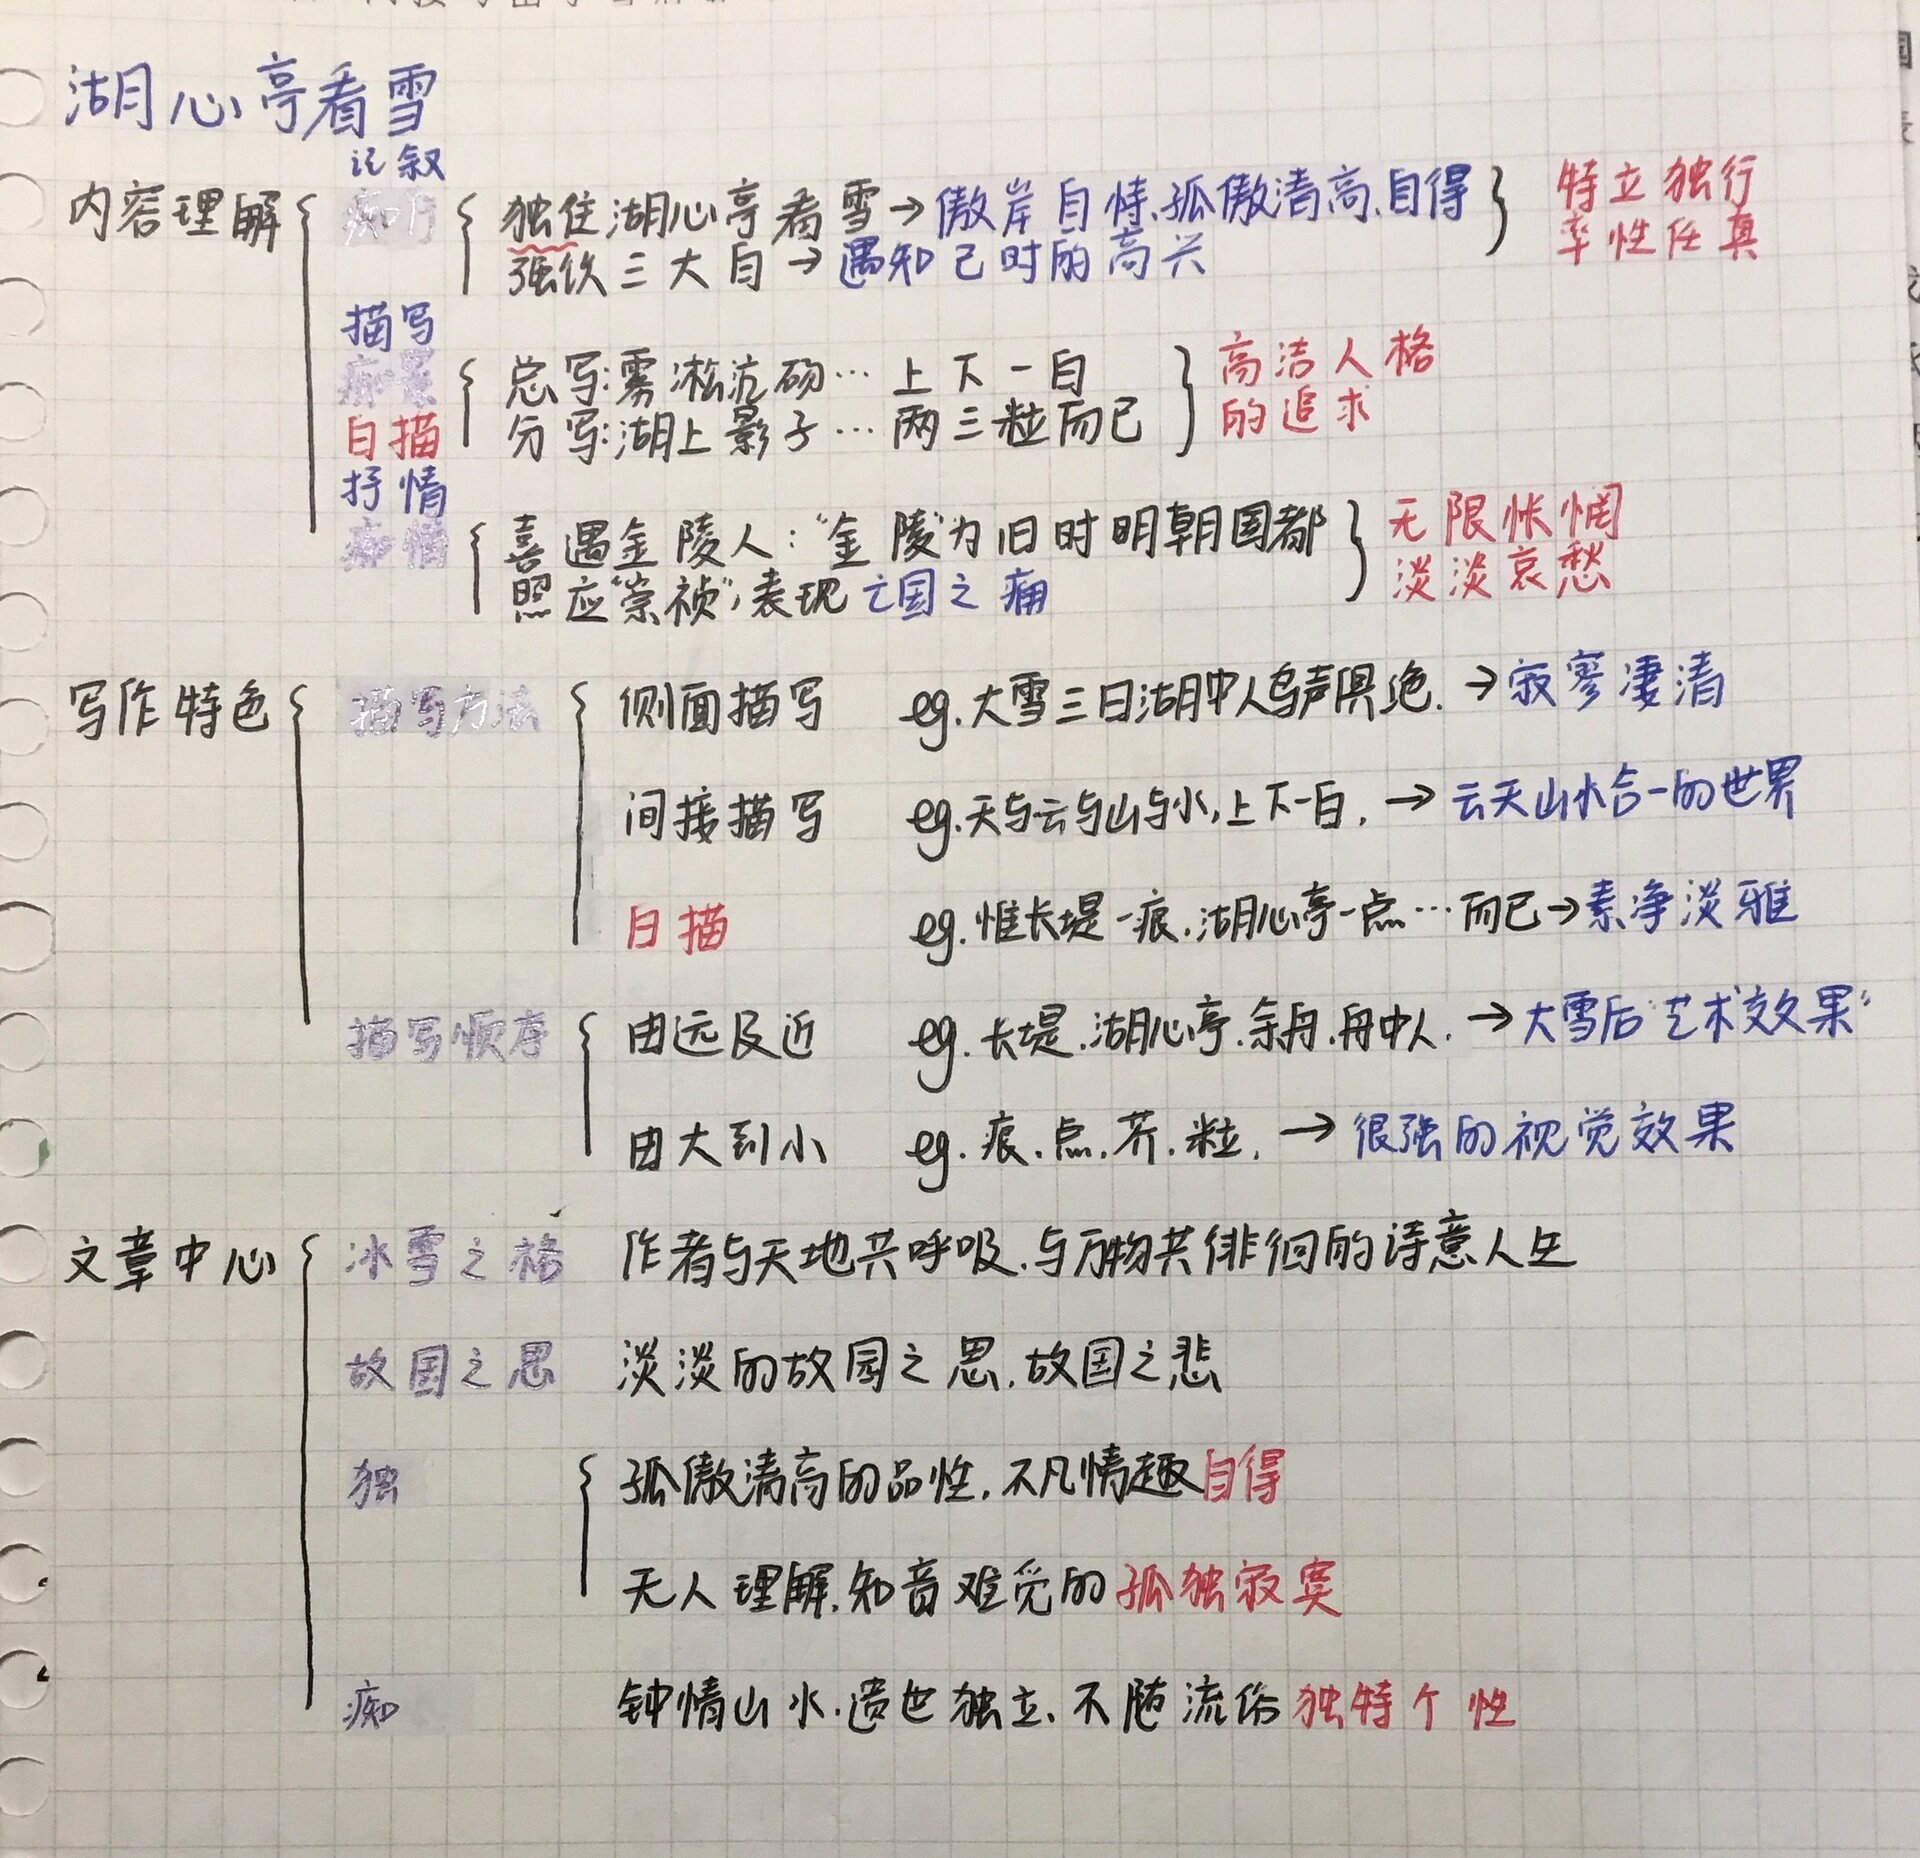 湖心亭看雪
记叙
内容理解 痴行 独住湖心亭看雪→傲岸自恃、孤傲清高、自得 特立独行
强饮三大白→遇知己时的高兴 率性任真
描写
痴景 总写:雾凇沆砀…上下一白 高洁人格
白描 分写:湖上影子…两三粒而已 的追求
抒情
痴情 喜遇金陵人:“金陵”为旧时明朝国都 无限怅惘
照应“崇祯”,表现亡国之痛 淡淡哀愁
写作特色 描写方法 侧面描写 eg.大雪三日湖中人鸟声俱绝.→寂寥凄清
间接描写 eg.天与云与山与水,上下一白.→云天山水合一的世界
白描 eg.惟长堤一痕.湖心亭一点…而已→素净淡雅
描写顺序 由远及近 eg.长堤.湖心亭.余舟.舟中人.→大雪后“艺术效果”
由大到小 eg.痕.点.芥.粒.→很强的视觉效果
文章中心 冰雪之格 作者与天地共呼吸.与万物共徘徊的诗意人生
故国之思 淡淡的故园之思.故国之悲
独 孤傲清高的品性.不凡情趣自得
无人理解.知音难觅的孤独寂寞
痴 钟情山水.遗世独立.不随流俗独特个性